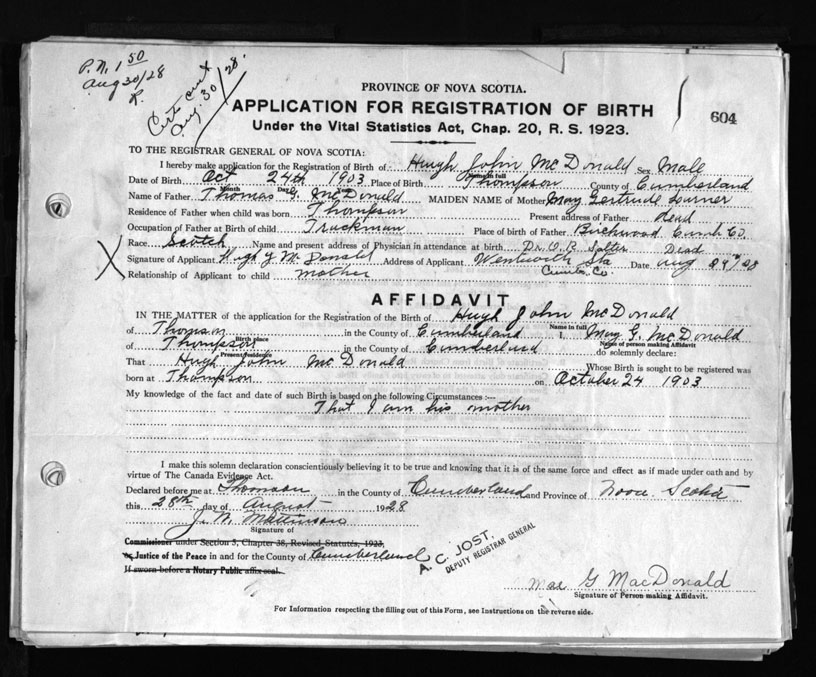 P.N. 1 50
Aug 30/28
Cert
Aug. 30/28.
PROVINCE OF NOVA SCOTIA.
APPLICATION FOR REGISTRATION OF BIRTH
604
Under the Vital Statistics Act, Chap. 20, R. S. 1923.
TO THE REGISTRAR GENERAL OF NOVA SCOTIA:
I hereby make application for the Registration of Birth of Hugh John McDonald Sex Male
Name in full
Date of Birth Oct 24th 1903 Place of Birth Thompson County of Cumberland
Month Day
Name of Father Thomas G. McDonald MAIDEN NAME of Mother Mary Gertrude
Residence of Father when child was born Thompson Present address of Father Dead
Occupation of Father at Birth of child Trackman Place of birth of Father Birchwood Cumb Co.
Race Scotch Name and present address of Physician in attendance at birth Dr. Dead
X Signature of Applicant Hugh J McDonald Address of Applicant Wentworth Sta Date Aug 28
Cumb Co.
Relationship of Applicant to child mother
AFFIDAVIT
IN THE MATTER of the application for the Registration of the Birth of Hugh John McDonald
Name in full
of Thomson in the County of Cumberland I, Mary G. McDonald
Birth place Name of person making Affidavit
of Thompson in the County of Cumberland do solemnly declare:
Present residence
That Hugh John McDonald Whose Birth is sought to be registered was
born at Thompson on October 24 1903
My knowledge of the fact and date of such Birth is based on the following Circumstances :—
That I am his mother
I make this solemn declaration conscientiously believing it to be true and knowing that it is of the same force and effect as if made under oath and by
virtue of The Canada Evidence Act.
Declared before me at Thomson in the County of Cumberland and Province of Nova Scotia
this 28th day of August 1928
J. N. Mattinson
Signature of
Commissioner under Section 5, Chapter 38, Revised Statutes, 1923,
Justice of the Peace in and for the County of Cumberland
If sworn before a Notary Public affix seal.
A. C. JOST,
DEPUTY REGISTRAR GENERAL
Mae G MacDonald
Signature of Person making Affidavit.
For Information respecting the filling out of this Form, see Instructions on the reverse side.